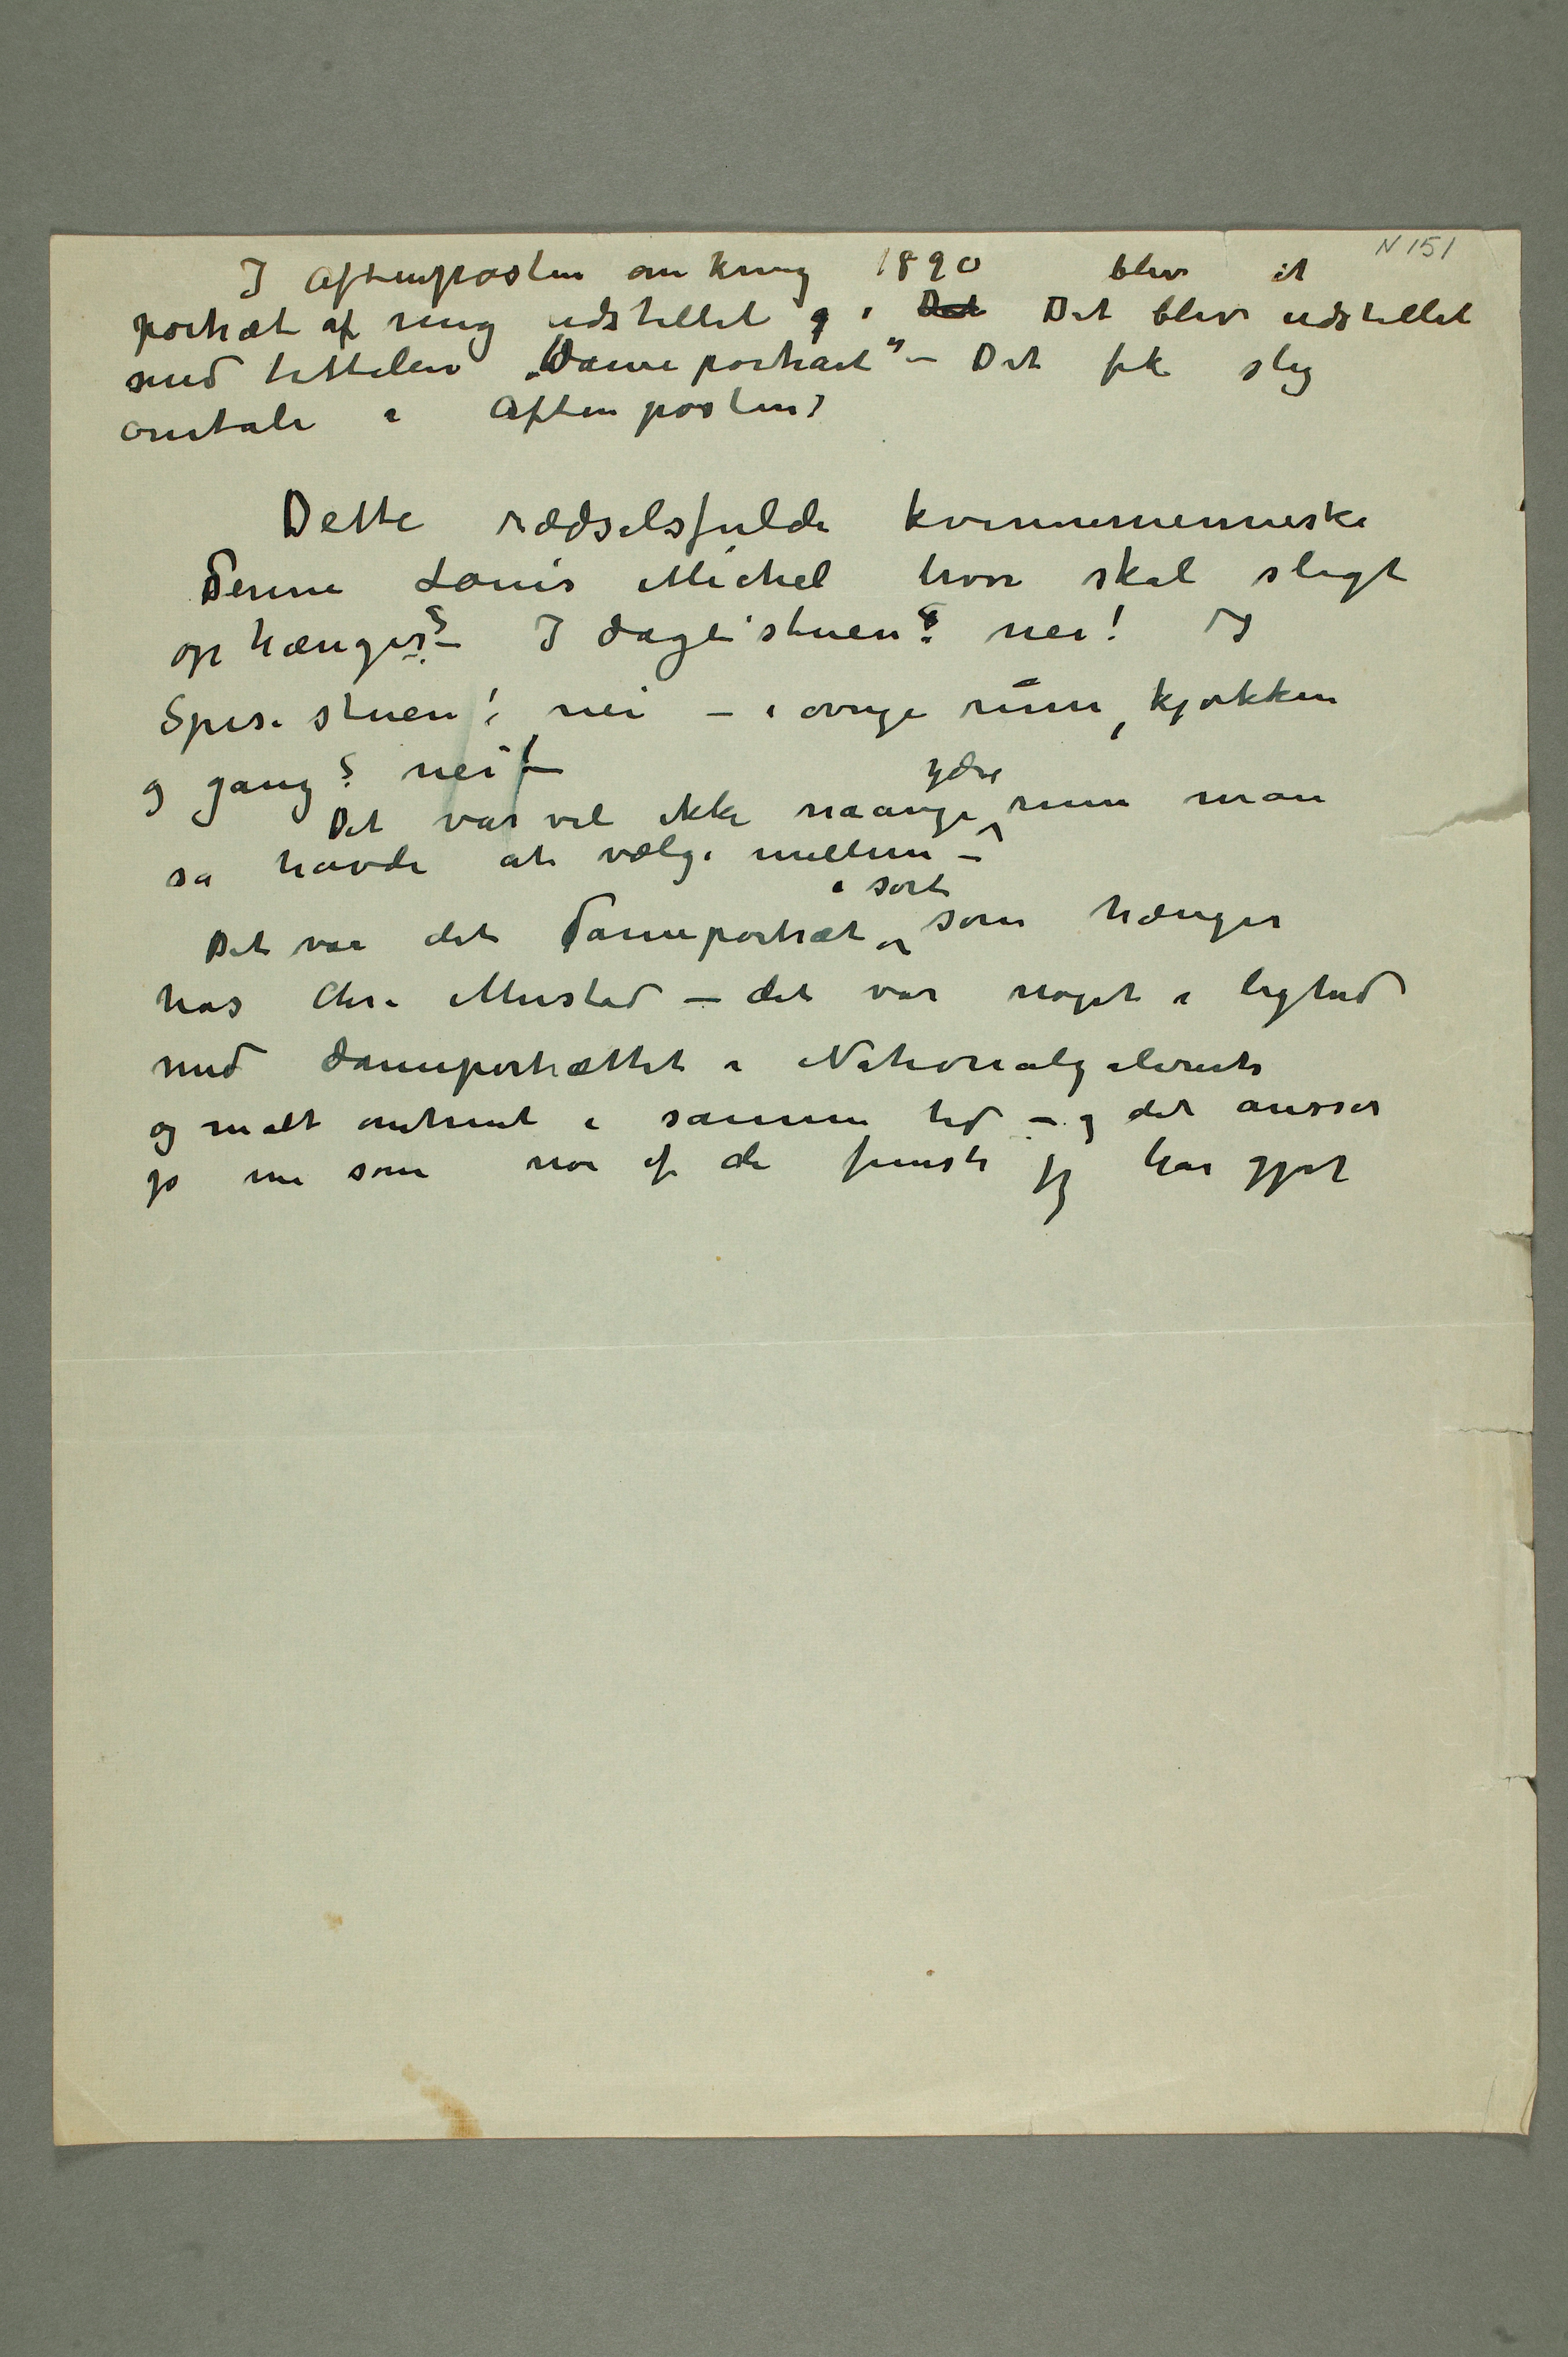 N 151
I Aftenposten omkring 1890 blev et
portræt af mig udstillet og i Det Det blev udstillet
med tittelen „Dameportræt" – Det fik slig
omtale i Aftenposten:
Dette rædselsfulde kvinnemenneske
Denne Louis Michel hvor skal sligt
ophænges? – I dagli'stuen? nei! I
Spisestuen! nei – i øvrige rum, kjøkken
og gang? nei! –
Det var vel ikke mange ydre rum man
så havde at vælge mellem –
Det var det Dameportræt i sort som hænger
hos Chr. Mustad – det var noget i lighed
med dameportrættet i Nationalgaleriet
og malt omtrent i samme tid – og det ansees
jo nu som noe af de fineste jeg har gjort